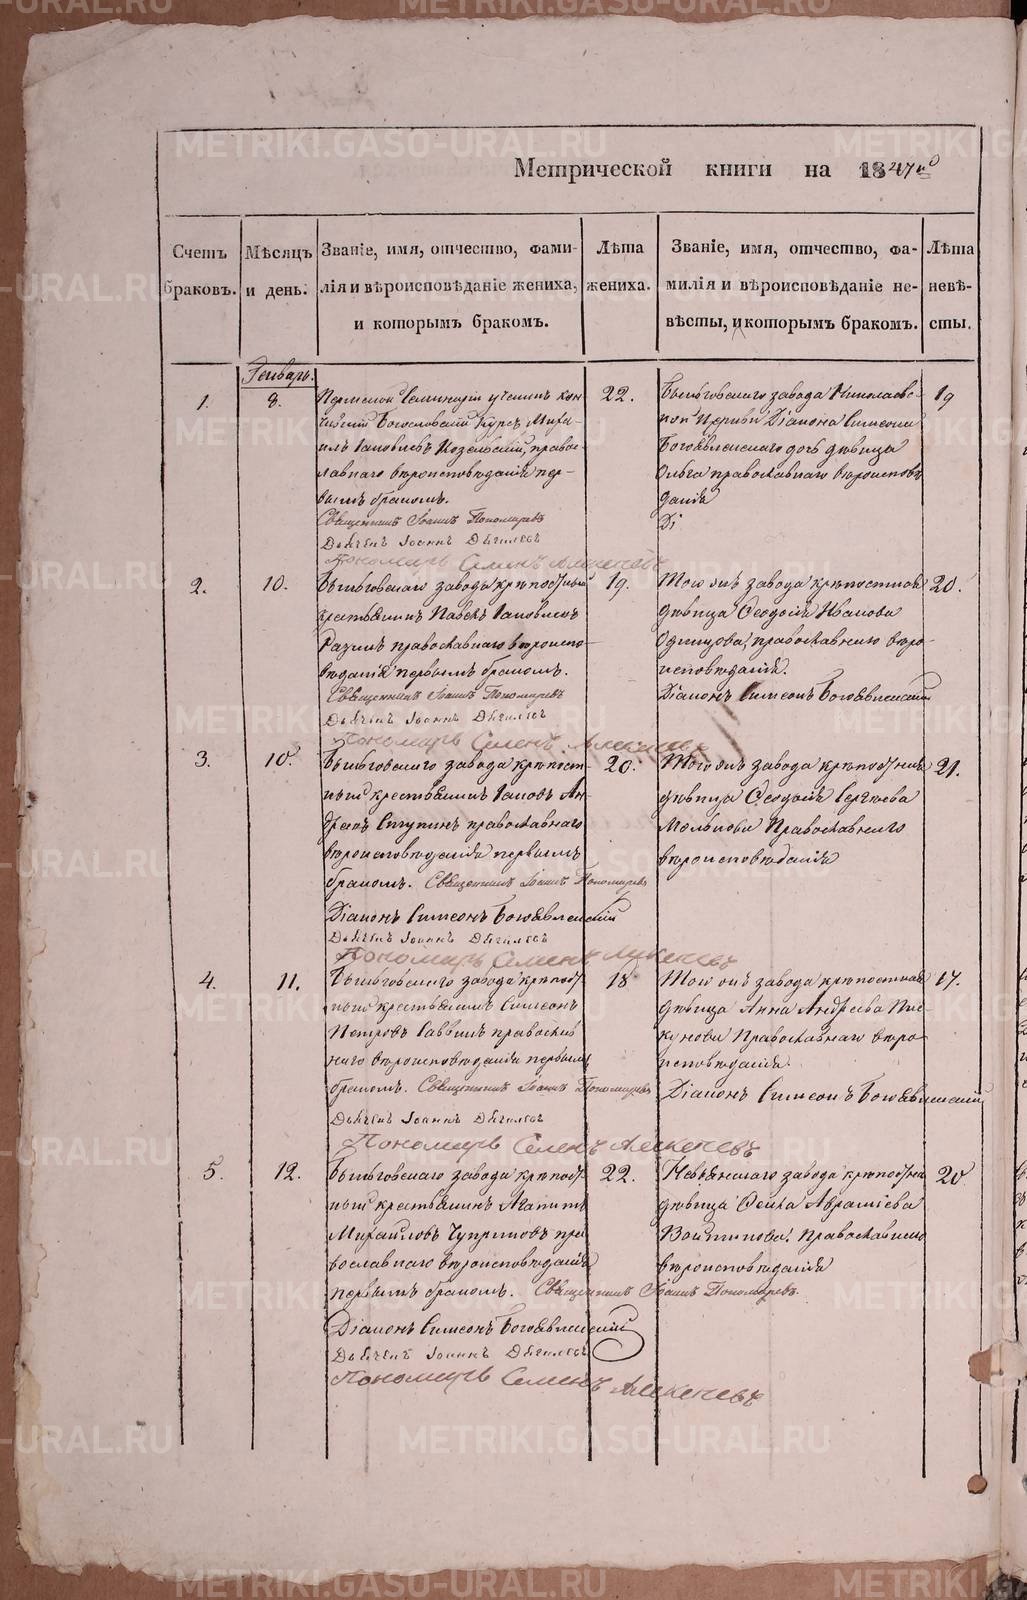 METRIKI.GASO-URAL.RU
Метрической книги на 1847й
Счетъ браковъ.
Мѣсяцъ и день.
Званіе, имя, отчество, фами-
лія и вѣроисповѣданіе жениха,
и которымъ бракомъ.
Лѣта
жениха.
Званіе, имя, отчество, фа-
милія и вѣроисповѣданіе не-
вѣсты, и которымъ бракомъ.
Лѣта
невѣ-
сты.
Генварь.
1.
8.
Пермской Семинаріи ученикъ кон-
чившій Богословскій Курсъ Миха-
илъ Іаковлевъ Козельскій, правос-
лавнаго вѣроисповѣданія пер-
вымъ бракомъ.
Священникъ Іоаннъ Пономаревъ
Дьячекъ Іоаннъ
Пономарь Семенъ
22.
завода Николаевс-
кой Церкви Діакона Симеона
Богоявленскаго дочь дѣвица
Ольга православнаго вѣроисповѣ
данія
Ді
19
2.
10.
завода крѣпостный
крестьянинъ Павелъ Іаковлевъ
православнаго вѣроиспо-
вѣданія первымъ бракомъ.
Священникъ Іоаннъ Пономаревъ
Дьячекъ Іоаннъ
Пономарь Семенъ
19.
Того жъ завода крѣпостная
дѣвица Феодосія Иванова
Одинцова, православнаго вѣро-
исповѣданія.
Діаконъ Симеонъ Богоявленскій
20.
3.
10.
завода крѣпост-
ный крестьянинъ Іаковъ Ан-
дреевъ православнаго
вѣроисповѣданія первымъ
бракомъ. Священникъ Іоаннъ Пономаревъ
Діаконъ Симеонъ Богоявленскій
Дьячекъ Іоаннъ
Пономарь Семенъ
20.
Того жъ завода крѣпостная
дѣвица Феодосія Сергѣева
Православнаго
вѣроисповѣданія
21.
4.
11.
завода крѣпост-
ный крестьянинъ Симеонъ
Петровъ Саввинъ православ
наго вѣроисповѣданія первымъ
бракомъ. Священникъ Іоаннъ Пономаревъ
Дьячекъ Іоаннъ
Пономарь Семенъ
18
Того жъ завода крѣпостная
дѣвица Анна Андреева Пис-
кунова Православнаго вѣро-
исповѣданія.
Діаконъ Симеонъ Богоявленскій
17.
5.
12.
завода крѣпост-
ный крестьянинъ
Михайловъ Чуприковъ пра
вославнаго вѣроисповѣданія
первымъ бракомъ. Священникъ Іоаннъ Пономаревъ.
Діаконъ Симеонъ Богоявленскій
Дьячекъ Іоаннъ
Пономарь Семенъ
22.
Невьянскаго завода крѣпостная
дѣвица Авраміева
Православнаго
вѣроисповѣданія
20